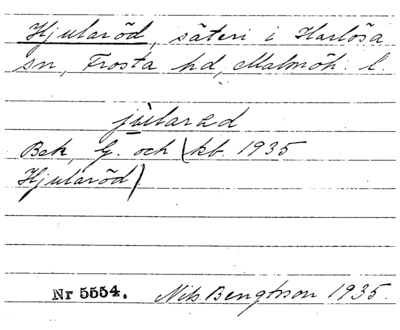 Hjularöd, säteri i Harlösa
sn, Frosta hd, Malmöh. l.
Bek, G. och kb. 1935
Hjularöd)
Nr 5554. Nils Bengtsson 1935.